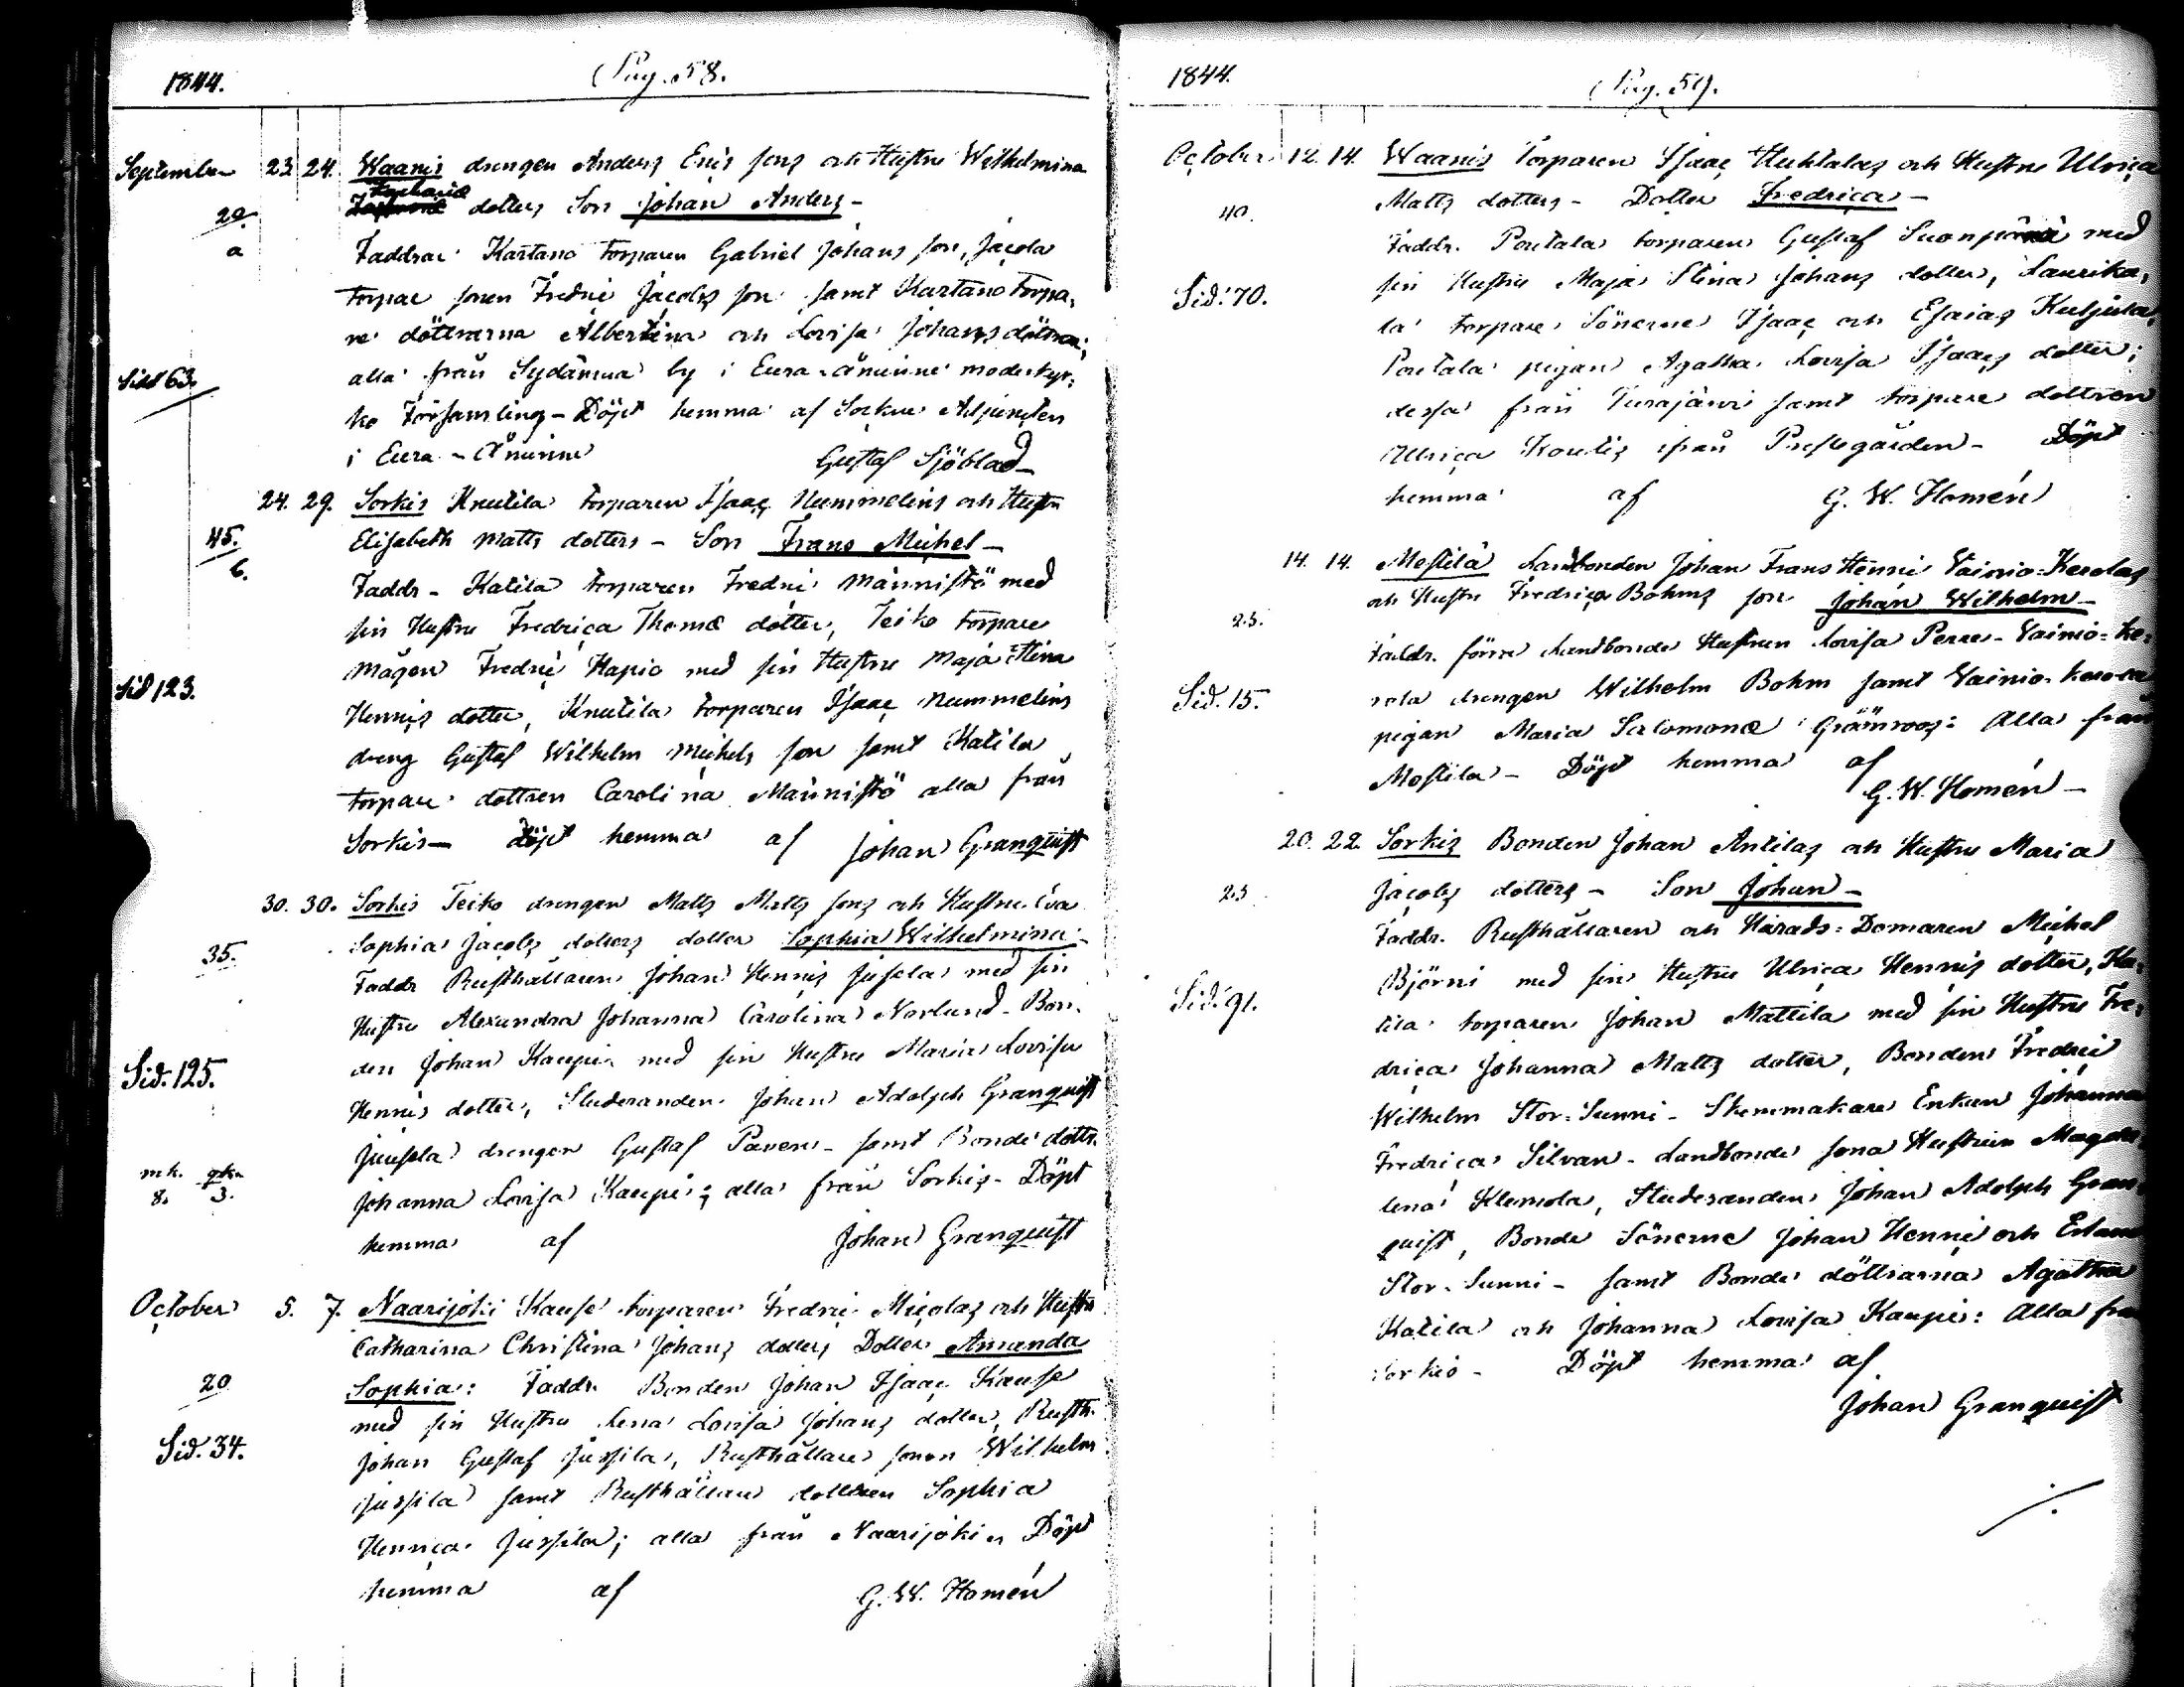 1844.
(Pag. 58.
September 23 24. Waanis drengen Anders Eris sons och Hustru Wilhelmina
Zachariæ
dotters Son Johan Anders –
20.
a
Faddrar Kartano torparen Gabriel Johans son, Jacola
torpare sonen Fredric Jacobs son samt Kartano torpa,
re döttrarna Albertina och Lovisa Johans döttrar,
Sid 63.
alla från Sydänma by i Eura-åminne moderkyr,
ko Församling – Döpt hemma af Sockne Adjuncten
i Eura-Åminne Gustaf Sjöblad –
24. 29. Sorkis Knutila torparen Isaac Nummelins och Hustru
45.
6.
Elisabeth Matts dotters – Son Frans Michel –
Faddr – Katila torparen Fredric Männistö med
sin Hustru Fredrica Thomæ dotter, Teiko torpare
mågen Fredric Hapio med sin Hustru Maja Stina
Sid 123.
Henrics dotter, Knutila torparen Isaac Nummelins
dreng Gustaf Wilhelm Michels son samt Katila
torpare dottren Carolina Männistö alla från
Sorkis – döpt hemma af Johan Granquist
30. 30. Sorkis Teiko drengen Matts Matts sons och Hustru Eva
Sophia Jacobs dotters dotter Sophia Wilhelmina –
35.
Faddr Rusthållaren Johan Henric Jusela med sin
Hustru Alexandra Johanna Carolina Norlund – Bon,
den Johan Kaupi med sin Hustru Maria Lovisa
Sid. 125.
Henrics dotter, Studeranden Johan Adolph Granquist
Juusela drengen Gustaf Paven – samt Bonde dottr.
mk.
8. 3.
Johanna Lovisa Kaupi; alla från Sorkis – Döpt
hemma af Johan Granquist
October 5. 7. Naarijoki Kause torparen Fredric Micolas och Hustru
Catharina Christina Johans dotters Dotter Amanda
20
Sophia: Faddr. Bonden Johan Isaac Kause
med sin Hustru Lena Lovisa Johans dotter, Rusth.
Sid. 34.
Johan Gustaf Jussila, Rusthållare sonen Wilhelm
Jussila samt Rusthållare dottren Sophia
Henrica Jussila; alla från Naarijoki – Döpt
hemma af G. W. Homén
1844.
(Pag. 59.
October 12. 14. Waanis Torparen Isaac Huhtalas och Hustru Ulrica
40.
Matts dotters – Dotter Fredrica –
Faddr. Poutala torparen Gustaf Suonpää med
Sid. 70.
sin Hustru Maja Stina Johans dotter, Laurika,
la torpare Sönerne Isaac och Esaias Kuljula,
Poutala pigan Agatha Lovisa Isaacs dotter;
dessa från Turajärvi samt torpare dottren
Ulrica Koulis ifrån Prestegården – Döpt
hemma af G. W. Homén
14. 14. Mestilä Landbonden Johan Frans Henric Vainio-Kerolas
och Hustru Fredrica Bohms son Johan Wilhelm –
23.
Faddr. förre Landbonde Hustrun Lovisa Perre – Vainio-Ke,
Sid. 15.
rola drengen Wilhelm Bohm samt Vainio-Kerola
pigan Maria Salomonæ Grönroos: Alla från
Mestila – Döpt hemma af
G. W. Homén –
20. 22. Sorkis Bonden Johan Antilas och Hustru Maria
23
Jacobs dotters – Son Johan –
Faddr. Rusthållaren och Härads-Domaren Michel
Björni med sin Hustru Ulrica Henrics dotter, Ka,
Sid. 91.
tila torparen Johan Mattila med sin Hustru Fre,
drica Johanna Matts dotter, Bonden Fredric
Wilhelm Stor-Sunni – Skommakare Enkan Johanna
Fredrica Silvan – Landbonde sona Hustrun Magda
lena Klemola, Studeranden Johan Adolph Gran
quist, Bonde Sönerne Johan Henric och Erland
Stor-Sunni – samt Bonde döttrarna Agatha
Katila och Johanna Lovisa Kaupi: Alla från
Sorkis – Döpt hemma af
Johan Granquist